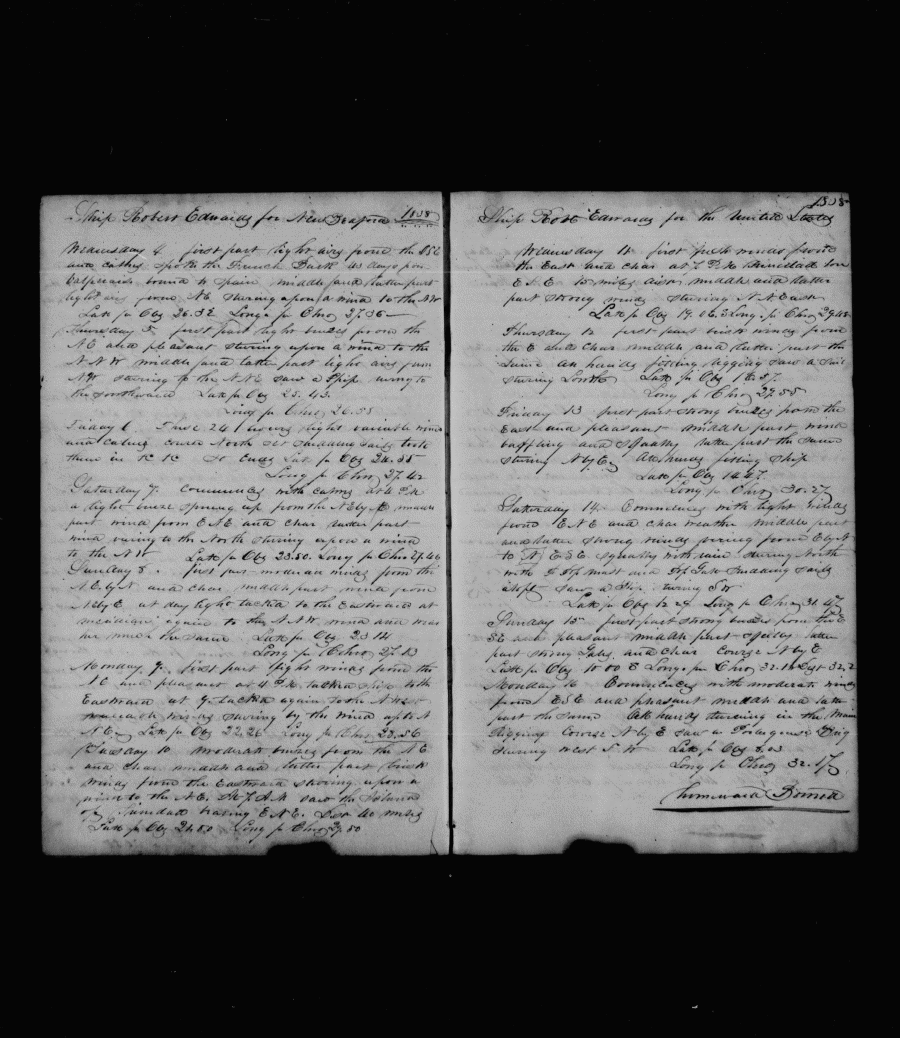 Ship Robert Edwards for New Bedford 1858
Wednesday 4 first part light airs from the ESE
and calms spoke the French Bark 40 days from
Valparaiso bound to Spain middle and latter part
light airs from NE stearing upon a wind to the NW
Latt pr Obs 26.32 Long pr Chro 27.36
Thursday 5 first part light breezes from the
NE and pleasant stearing upon a wind to the
NNW middle and latter part light airs from
NW stearing to the NNE saw a Ship going to
the southward Latt pr Obs 25.43
Long pr Chro 26.55
Friday 6 These 24 hours light variable winds
and calms course North set studding sails took
them in So Ends Latt pr Obs 24.35
Long pr Chro 27.42
Saturday 7 Commences with calms at 4 PM
a light breeze sprung up from the NE by N middle
part wind from ENE and clear latter part
wind varing to the North stearing upon a wind
to the NW Latt pr Obs 23.50 Long pr Chro 27.46
Sunday 8 first part moderate winds from the
NE by N and clear middle part wind from
N by E at day light tacked to the Eastward at
meridian again to the NNW wind and weather
much the same Latt pr Obs 23.14
Long pr Chro 27.13
Monday 9 first part light winds from the
NE and pleasant at 4 PM tacked ship to the
Eastward at 9 tacked again to the
moderate winds stearing by the wind up to N
NE Latt pr Obs 22.26 Long pr Chro 28.56
Tuesday 10 moderate breezes from the NE
and clear middle and latter part brisk
winds from the Eastward stearing upon a
wind to the NE At 7 AM saw the Island
of Trinidad bearing ENE Dist 40 miles
Latt pr Obs 21.00 Long pr Chro 29.50
1858
Ship Robt Edwards for the United States
Wednesday 11 first fresh winds from
the East and clear at 7 PM Trinidad bore
ESE 15 miles dist middle and latter
part strong winds stearing NNEast
Latt pr Obs 19.06 Long pr Chro
Thursday 12 first part brisk winds from
the E and clear middle and latter part the
Same all hands fitting rigging saw a Sail
stearing South Latt pr Obs
Long pr Chro 29.55
Friday 13 first part strong breezes from the
East and pleasant middle part wind
baffling and squally latter part the same
stearing N by E All hands fitting ship
Latt pr Obs 14.47
Long pr Chro 30.27
Saturday 14 Commences with light winds
from ENE and clear weather middle part
and latter strong winds varing from E by N
to ESE squally with rain stearing North
with F Top mast and Top Gall Studding sails
saw a Ship stearing SW
Latt pr Obs 12.24 Long pr Chro 31.47
Sunday 15 first part strong breezes from the E
SE and pleasant middle part squally latter
part strong Gales and clear Course N by E
Latt pr Obs 10.00 Long pr Chro
Monday 16 Commences with moderate winds
from ESE and pleasant middle and latter
part the same All hands turning in the Main
Rigging Course N by E saw a Portuguese Brig
stearing west SW Latt pr Obs
Long pr Chro 32.17
homeward Bound